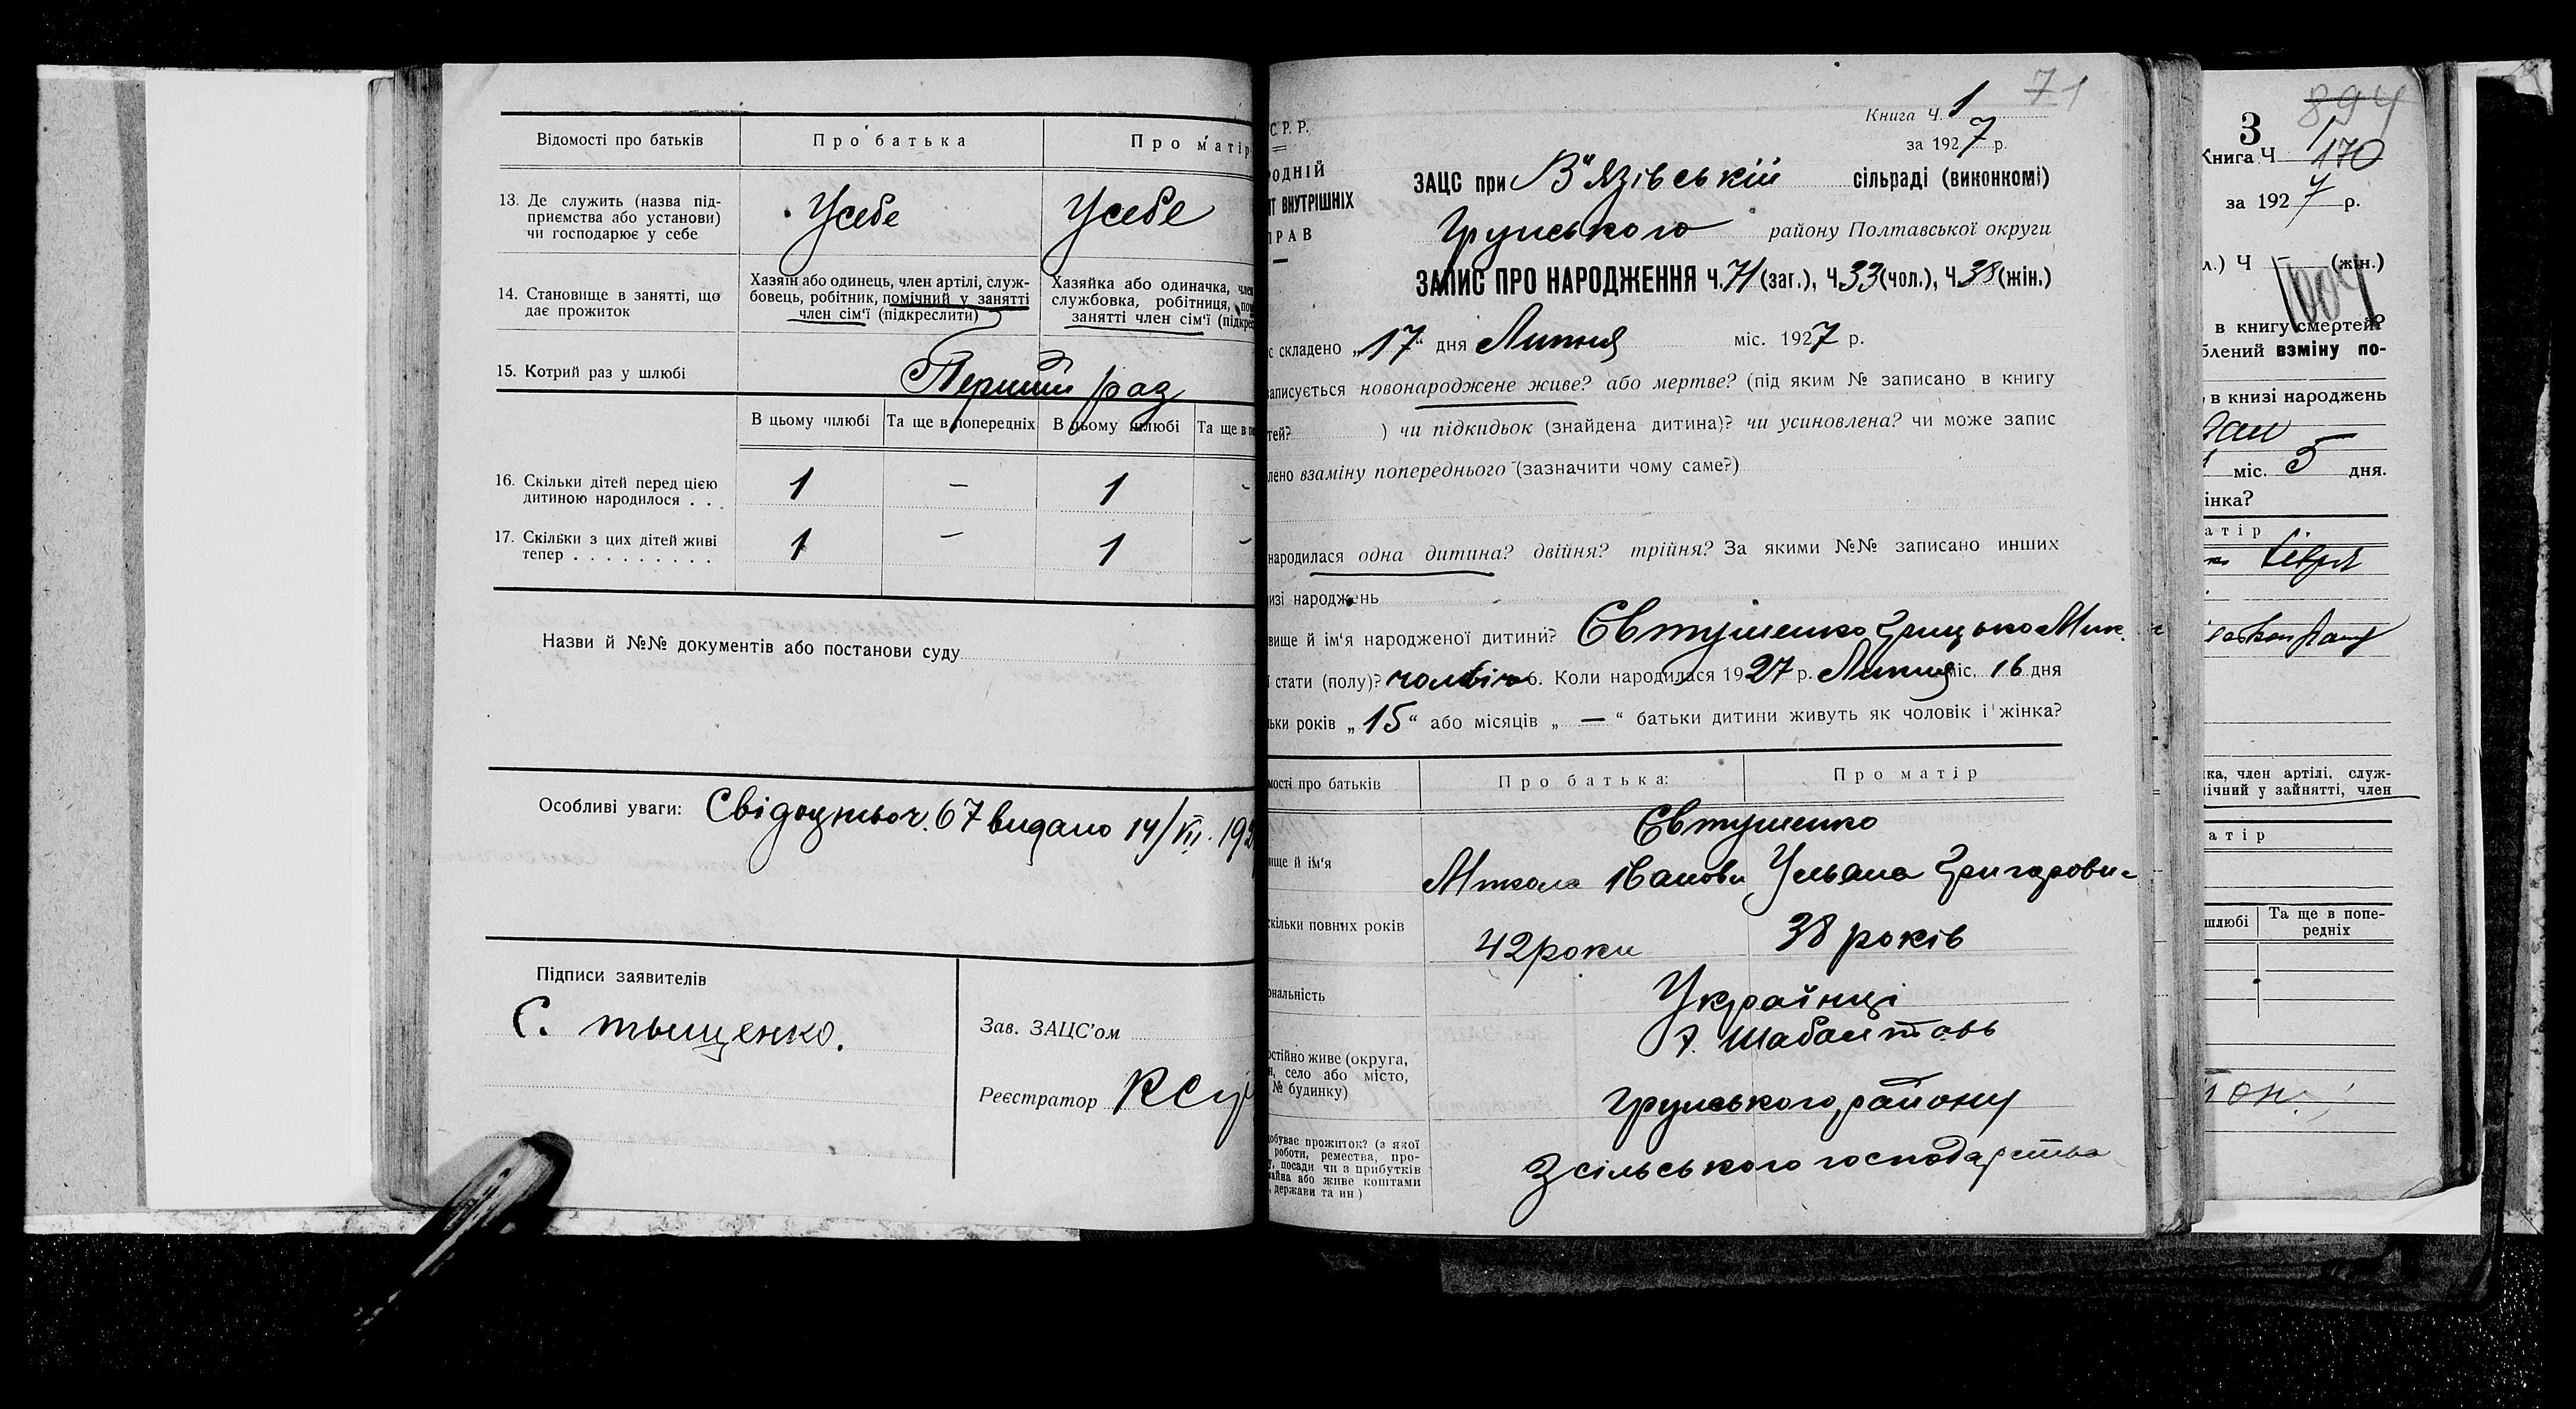 Відомості про батьків
Про батька
Про матір
13. Де служить (назва під-
приємства або установи)
чи господарює у себе
Усебе
Усебе
14. Становище в занятті, що
дає прожиток
Хазяїн або одинець, член артілі, служ-
бовець, робітник, помічний у занятті
член сім'ї (підкреслити)
Хазяйка або одиначка, член
службовка, робітниця, пом
занятті член сім'ї (підкрес
15. Котрий раз у шлюбі
Перший раз
В цьому шлюбі
Та ще в попередніх
В цьому шлюбі
Та ще в по
16. Скільки дітей перед цією
дитиною народилося . .
1 — 1 -
17. Скільки з цих дітей живі
тепер . . . . . . . .
1 — 1 -
Назви й №№ документів або постанови суду
Особливі уваги: Свідоцтво ч. 67 видано 14/VII. 192
Підписи заявителів
С. тыщенко.
Зав. ЗАЦС'ом
Реєстратор
71
С. Р. Р.
РОДНІЙ
ІТ ВНУТРІШНІХ
ПРАВ
Книга Ч. 1
за 1927 р.
ЗАЦС при В'язівській сільраді (виконкомі)
Грунського району Полтавської округи
ЗАПИС ПРО НАРОДЖЕННЯ Ч. 71 (заг.), Ч. 33 (чол.), Ч. 38 (жін.)
с складено „17“ дня Липня міс. 1927 р.
записується новонароджене живе? або мертве? (під яким № записано в книгу
тей? ) чи підкидьок (знайдена дитина)? чи усиновлена? чи може запис
лено взаміну попереднього (зазначити чому саме?)
народилася одна дитина? двійня? трійня? За якими №№ записано инших
изі народжень
вище й ім'я народженої дитини? Євтушенко Грицько Мик.
ї стати (полу)? чоловічо 6. Коли народилася 1927 р. Липня міс. 16 дня
льки років „15“ або місяців „—“ батьки дитини живуть як чоловік і жінка?
мості про батьків
Про батька:
Про матір
вище й ім'я
Євтушенко
Микола Іванови
Ульяна Григорови-
скільки повних років
42 роки
38 років
ональність
Українці
остійно живе (округа,
н, село або місто,
№ будинку)
х. Шабалтовь
Грунського району
обуває прожиток? (з якої
роботи, ремества, про-
у, посади чи з прибутків
майна або живе коштами
, держави та ин.)
З сільського господарства
894
3
Книга Ч 1
170
за 1927 р.
л.) Ч — (жін.)
в книгу смертей?
блений взміну по-
, в книзі народжень
міс. 5 дня.
інка?
атір
ка, член артілі, служ-
ічний у зайнятті, член
атір
шлюбі
Та ще в попе-
редніх